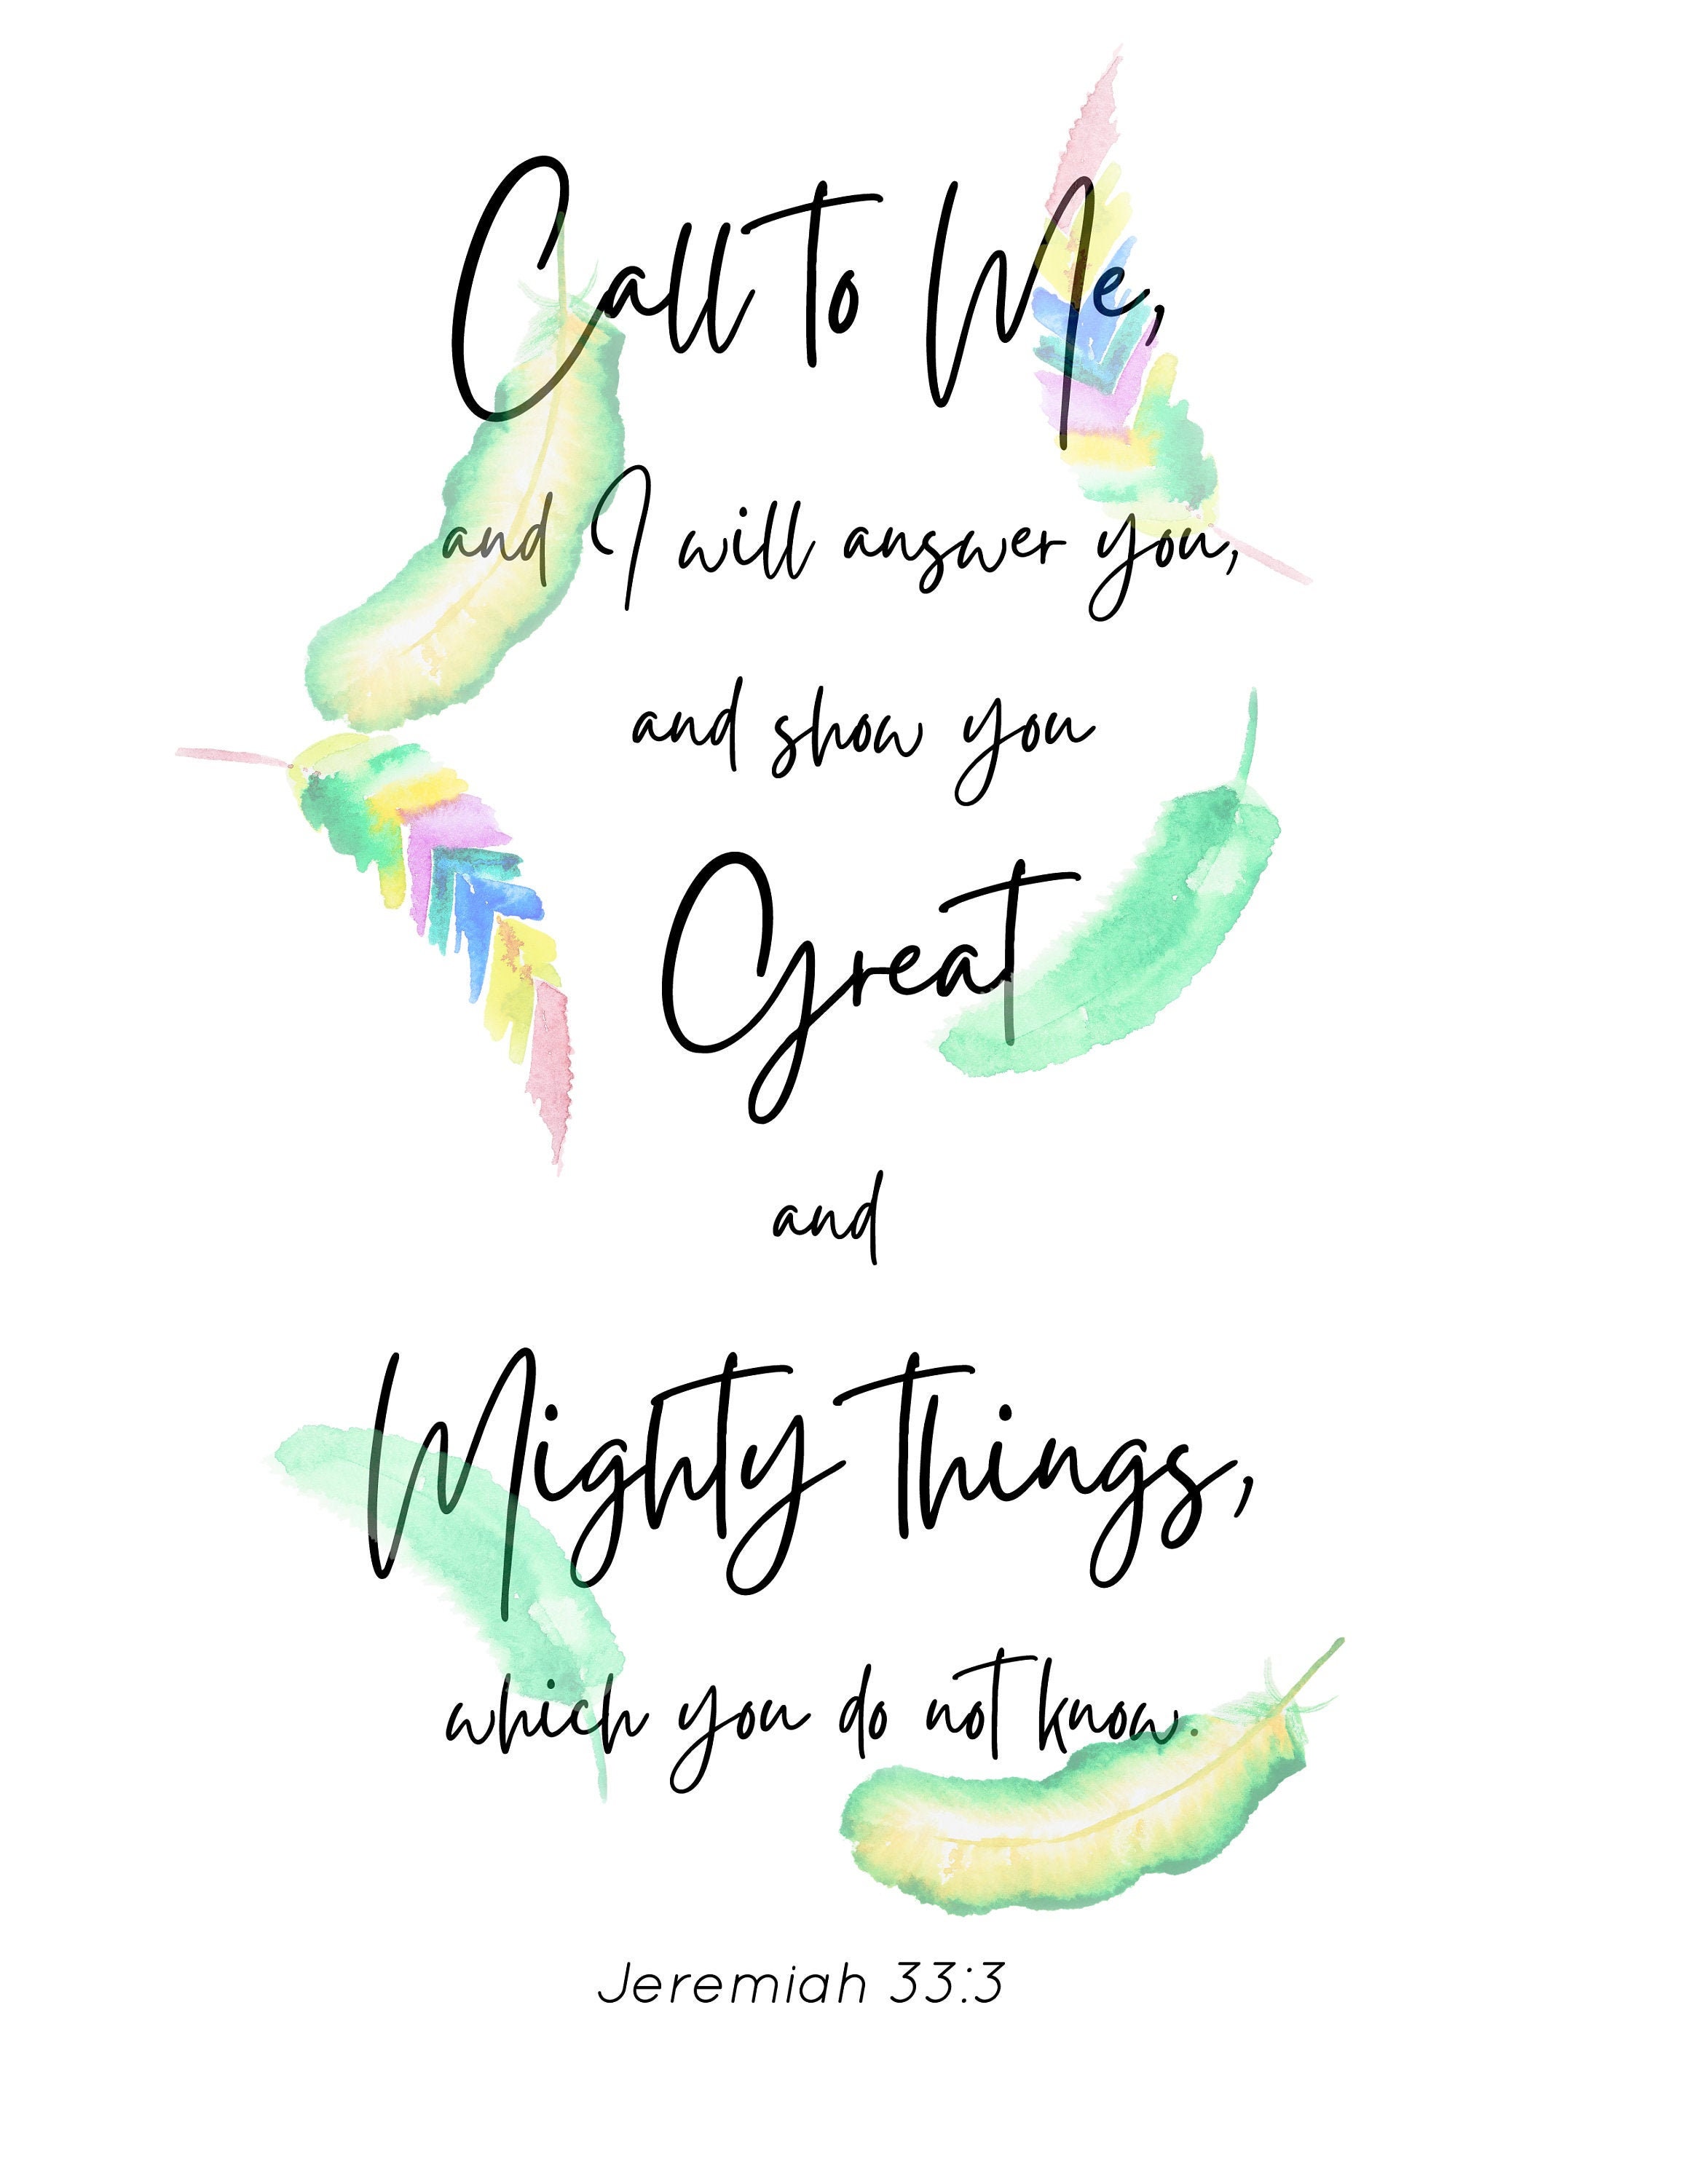 Call to Me,
and I will answer you,
and show you
Great
and
Mighty things,
which you do not know.
Jeremiah 33:3